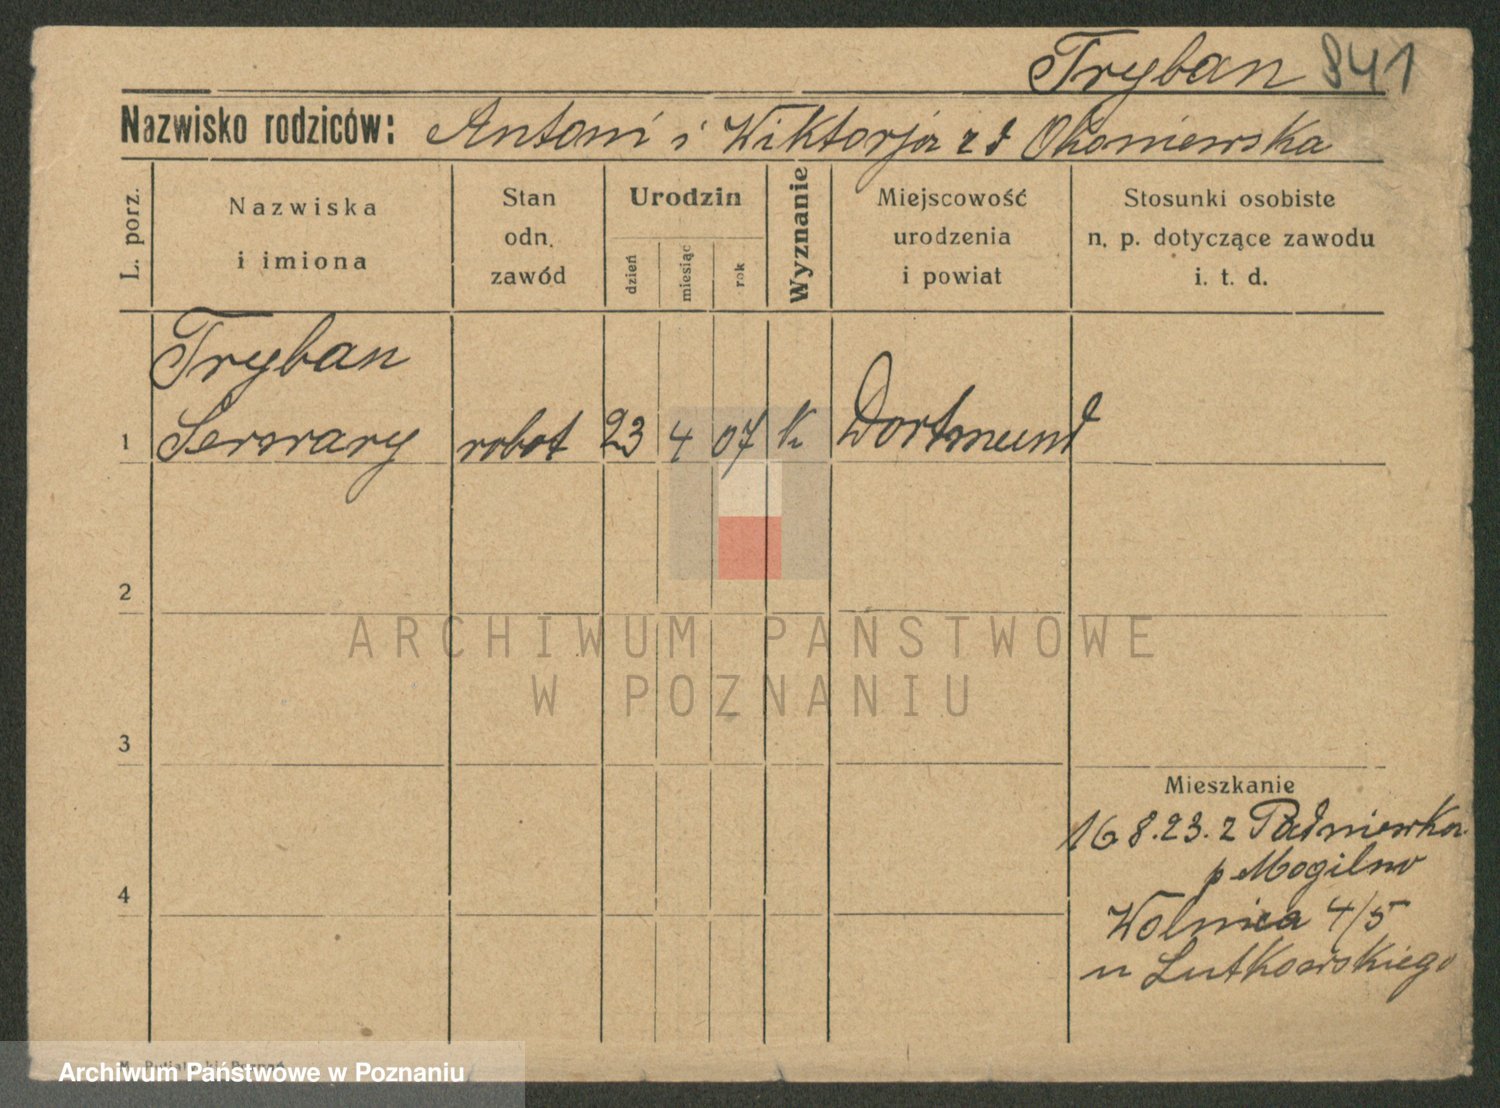 Tryban 841
Nazwisko rodziców: Antoni i Wiktorja z d Okoniewska
L. porz.
Nazwiska
i imiona
Stan
odn.
zawód
Urodzin
dzień
miesiąc
rok
Wyznanie
Miejscowość
urodzenia
i powiat
Stosunki osobiste
n. p. dotyczące zawodu
i. t. d.
Tryban
1 Serwary robot 23 4 07 k Dortmund
2
ARCHIWUM PAŃSTWOWE
W POZNANIU
3
Mieszkanie
16 8.23. z Padniewka
p Mogilno
4
Wolnica 4/5
u Lutkowskiego
Archiwum Państwowe w Poznaniu